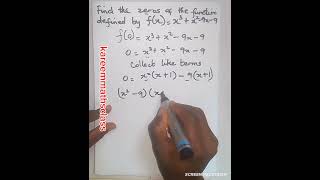 Find the zeros of the function
defined by f(x) = x³ + x² - 9x - 9
f(0) = x³ + x² - 9x - 9
0 = x³ + x² - 9x - 9
Collect like terms
0 = x²(x+1) - 9(x+1)
(x² - 9)(x
kareemmathsclass